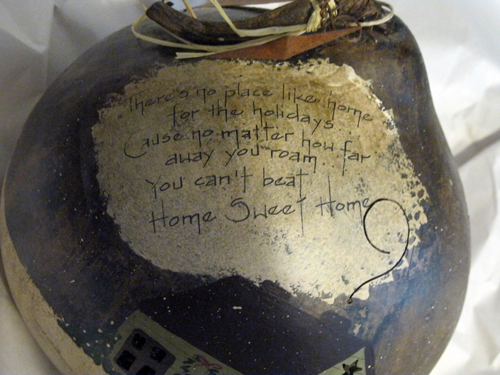 There's no place like home
for the holidays
Cause no matter how far
away you roam
You can't beat
Home Sweet Home